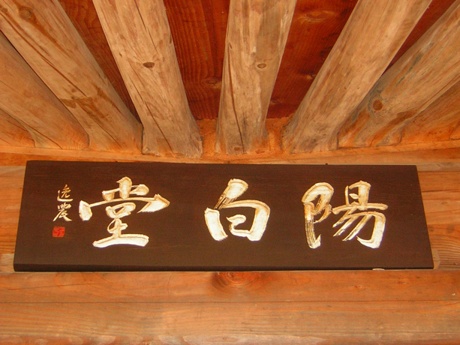 陽白堂
逸農